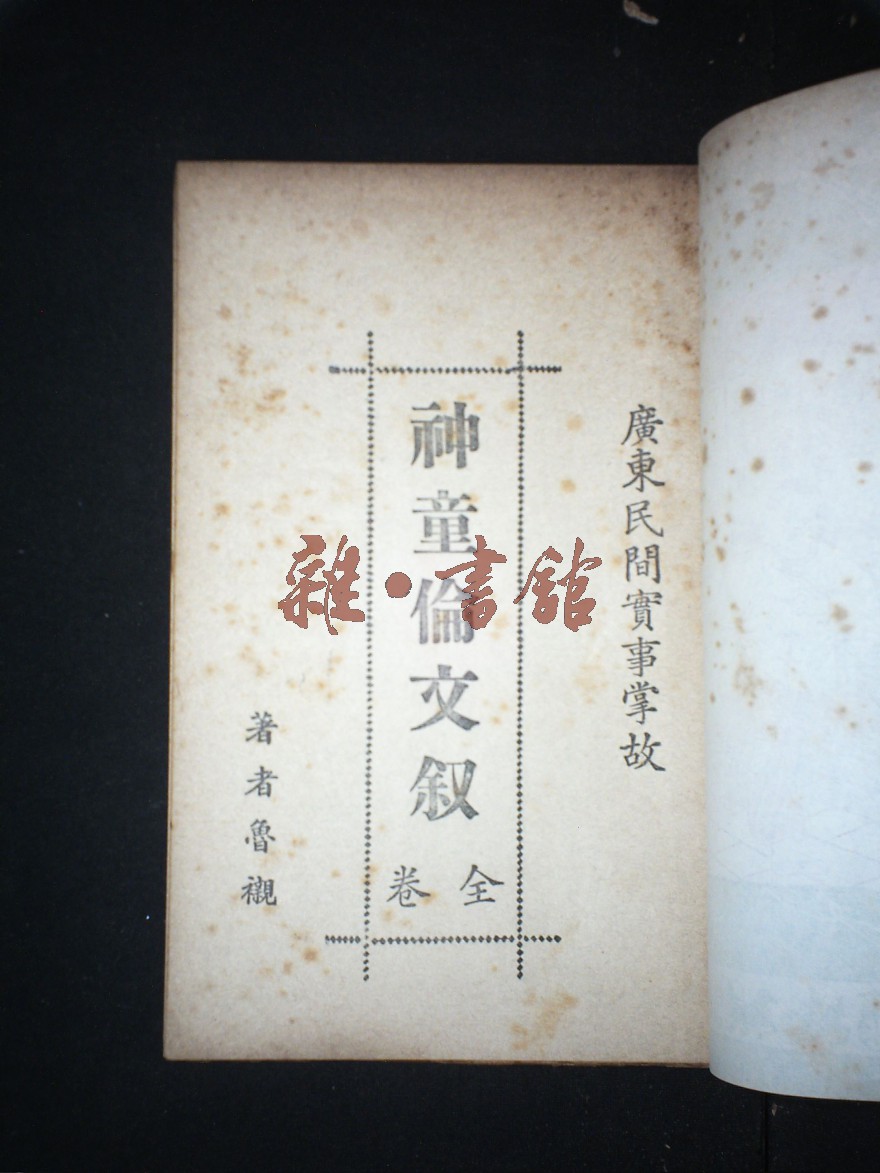 廣東民間實事掌故
神童倫文叙
全卷
著者魯襯
雜·書館